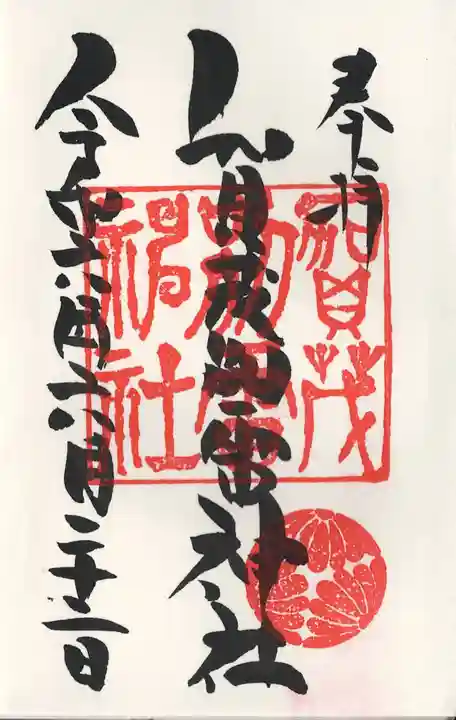 奉拝
賀茂別雷神社
令和六年六月二十二日
賀茂
別雷
神社